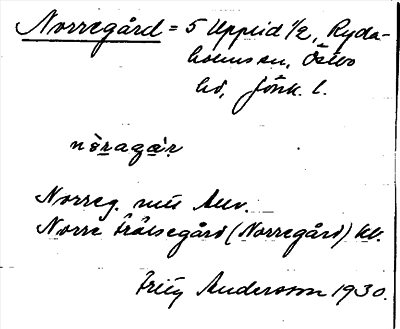 Norregård = 5 Uppeid 1/2, Ryda-
holms sn, Östbo
hd, Jönk. l.
nò̀ragà̀r
Norreg.
Norre Frälsegård (Norregård) kb.
Fritz Anderson 1930.